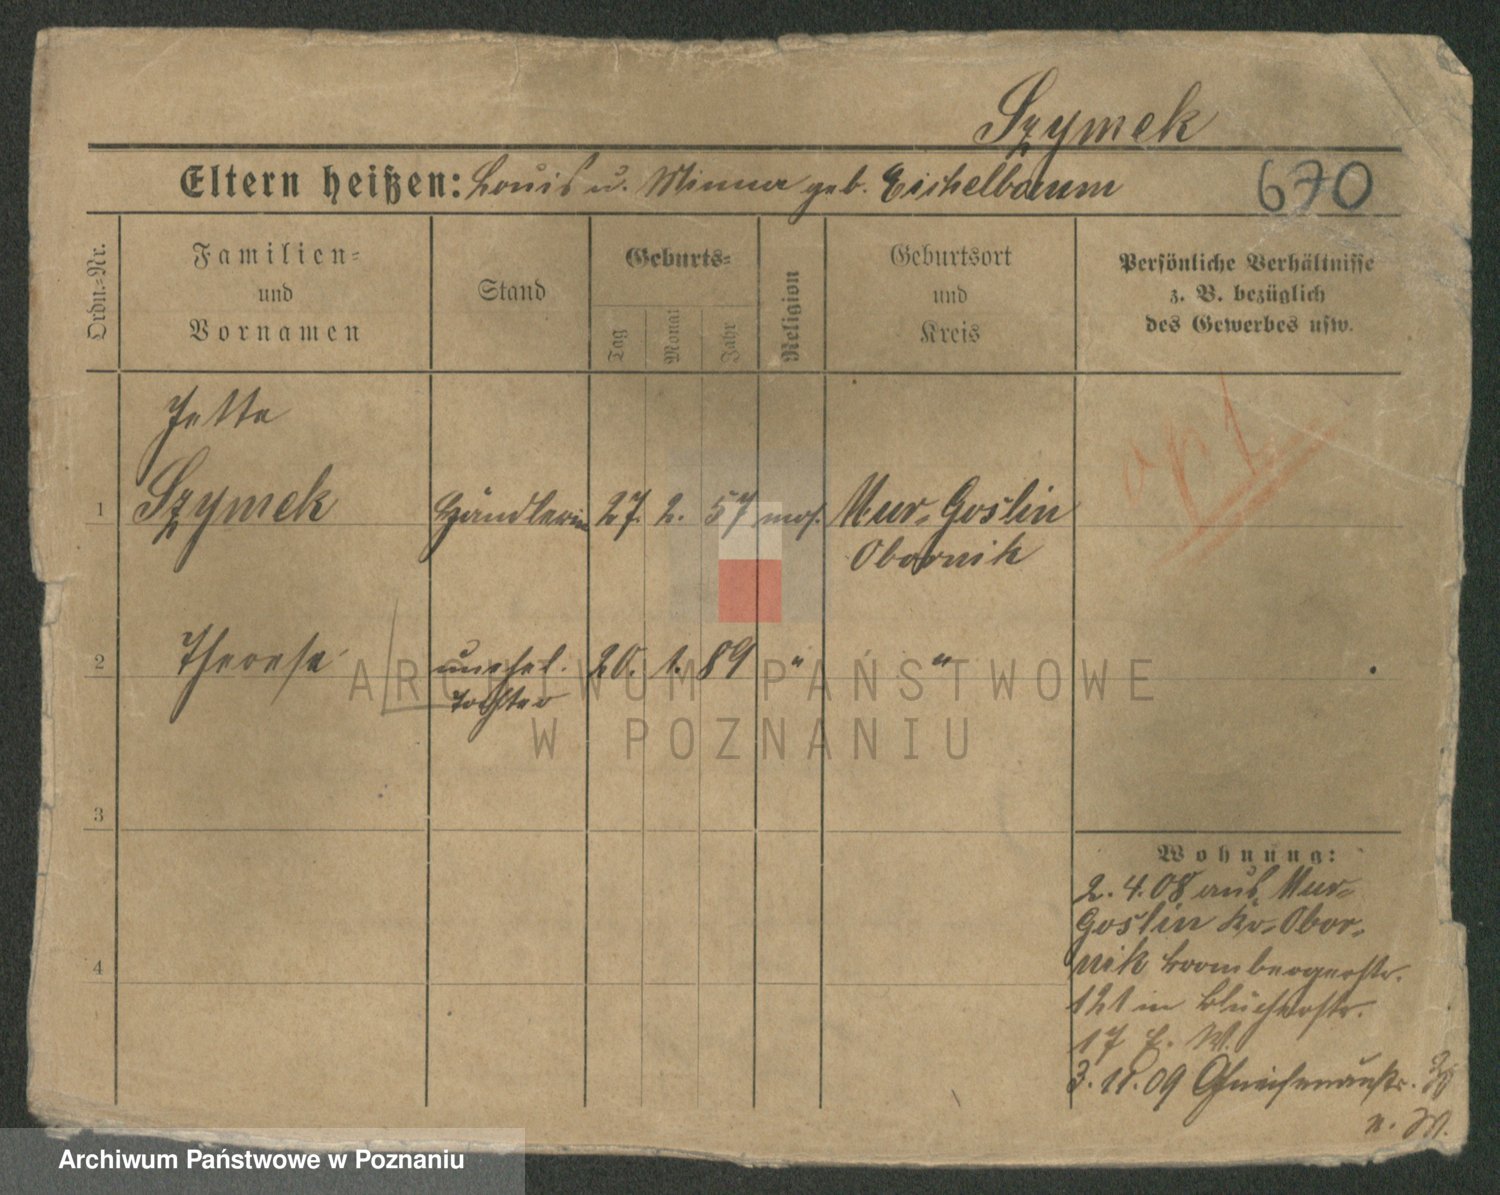 Szymek
Eltern heißen: Louis u. Minna geb. Eichelbaum 670
Ordn.-Nr.
Familien-
und
Vornamen
Stand
Geburts-
Tag
Monat
Jahr
Religion
Geburtsort
und
Kreis
Persönliche Verhältnisse
z. B. bezüglich
des Gewerbes usw.
Jette
1 Szymek Händlerin 27. 2. 57 mos. Mur. Goslin
Obornik
2 Therese unehel. 20. 1. 89 " "
Tochter
3
4
Wohnung:
2. 4. 08 aus Mur-
Goslin Kr. Obor-
nik
121 in Blücherstr.
17
3. 11. 09 Gneisenaustr.
ARCHIWUM PAŃSTWOWE
W POZNANIU
Archiwum Państwowe w Poznaniu